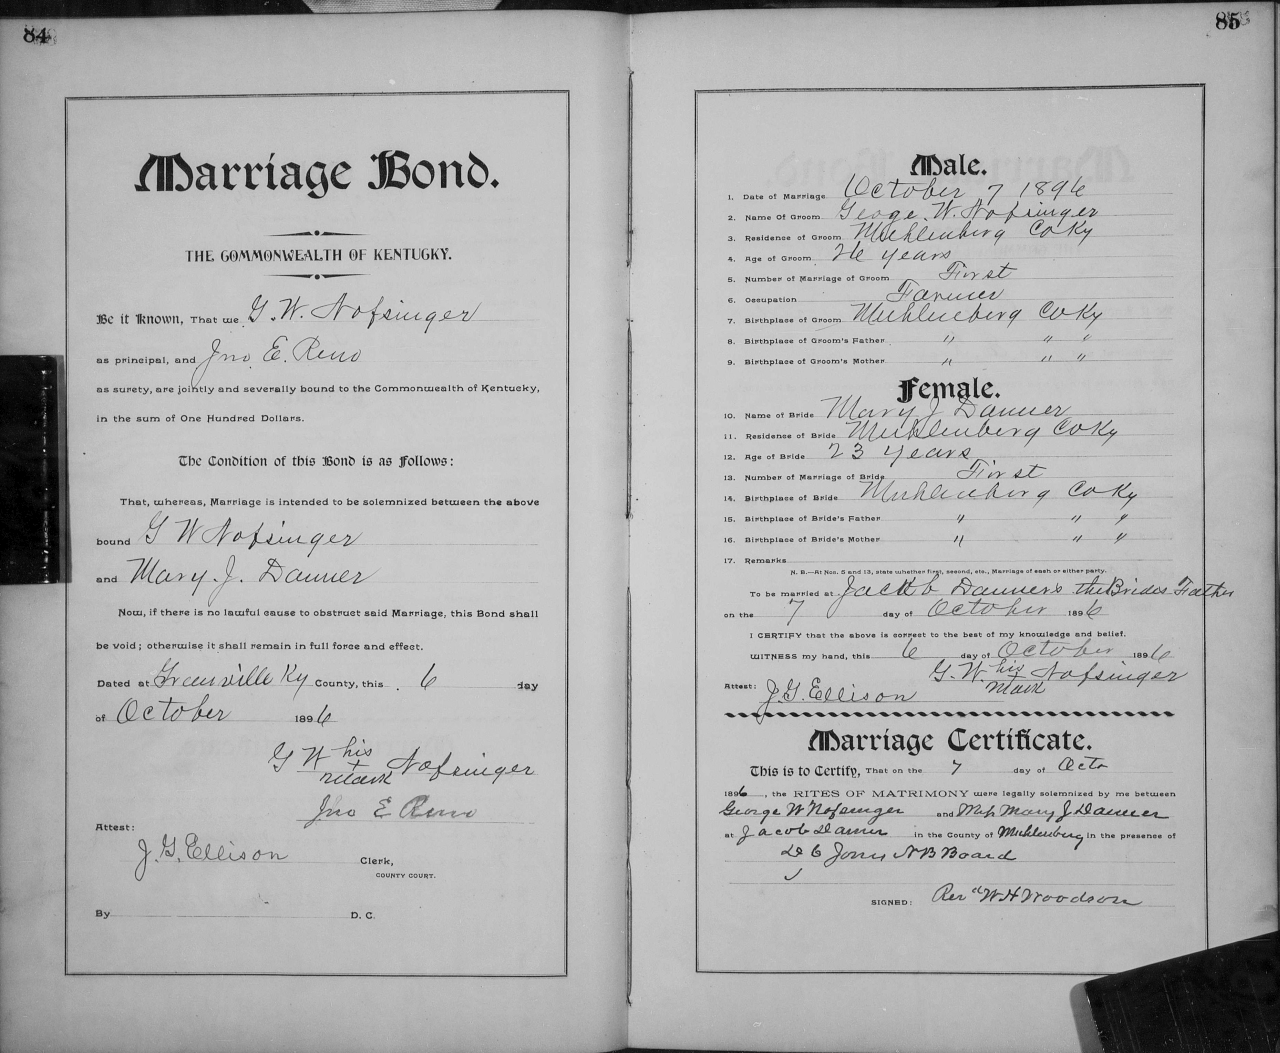 84
Marriage Bond.
THE COMMONWEALTH OF KENTUCKY.
Be it Known, That we G. W. Nofsinger
as principal, and Jno E. Reno
as surety, are jointly and severally bound to the Commonwealth of Kentucky,
in the sum of One Hundred Dollars.
The Condition of this Bond is as Follows:
That, whereas, Marriage is intended to be solemnized between the above
bound G W Nofsinger
and Mary. J. Danner
Now, if there is no lawful cause to obstruct said Marriage, this Bond shall
be void; otherwise it shall remain in full force and effect.
Dated at Greenville Ky County, this 6 day
of October 1896
G W his mark Nofsinger
Jno E Reno
Attest:
J. G. Ellison Clerk,
COUNTY COURT.
By D. C.
85
Male.
1. Date of Marriage October 7 1896
2. Name Of Groom George. W. Nofsinger
3. Residence of Groom Muhlenberg Co Ky
4. Age of Groom 26 years
5. Number of Marriage of Groom First
6. Occupation Farmer
7. Birthplace of Groom Muhlenberg Co Ky
8. Birthplace of Groom's Father " " "
9. Birthplace of Groom's Mother " " "
Female.
10. Name of Bride Mary J Danner
11. Residence of Bride Muhlenberg Co Ky
12. Age of Bride 23 years
13. Number of Marriage of Bride First
14. Birthplace of Bride Muhlenberg Co Ky
15. Birthplace of Bride's Father " " "
16. Birthplace of Bride's Mother " " "
17. Remarks
N. B.—At Nos. 5 and 13, state whether first, second, etc., Marriage of each or either party.
To be married at Jackb Danners the Brides Father
on the 7 day of October 1896
I CERTIFY that the above is correct to the best of my knowledge and belief.
WITNESS my hand, this 6 day of October 1896
G. W. his mark Nofsinger
Attest: J. G. Ellison
Marriage Certificate.
This is to Certify, That on the 7 day of Octo
1896, the RITES OF MATRIMONY were legally solemnized by me between
George W Nofsinger and Miss Mary J Danner
at Jacob Danner in the County of Muhlenberg in the presence of
Jones N B Board
SIGNED: Revd W H Woodson